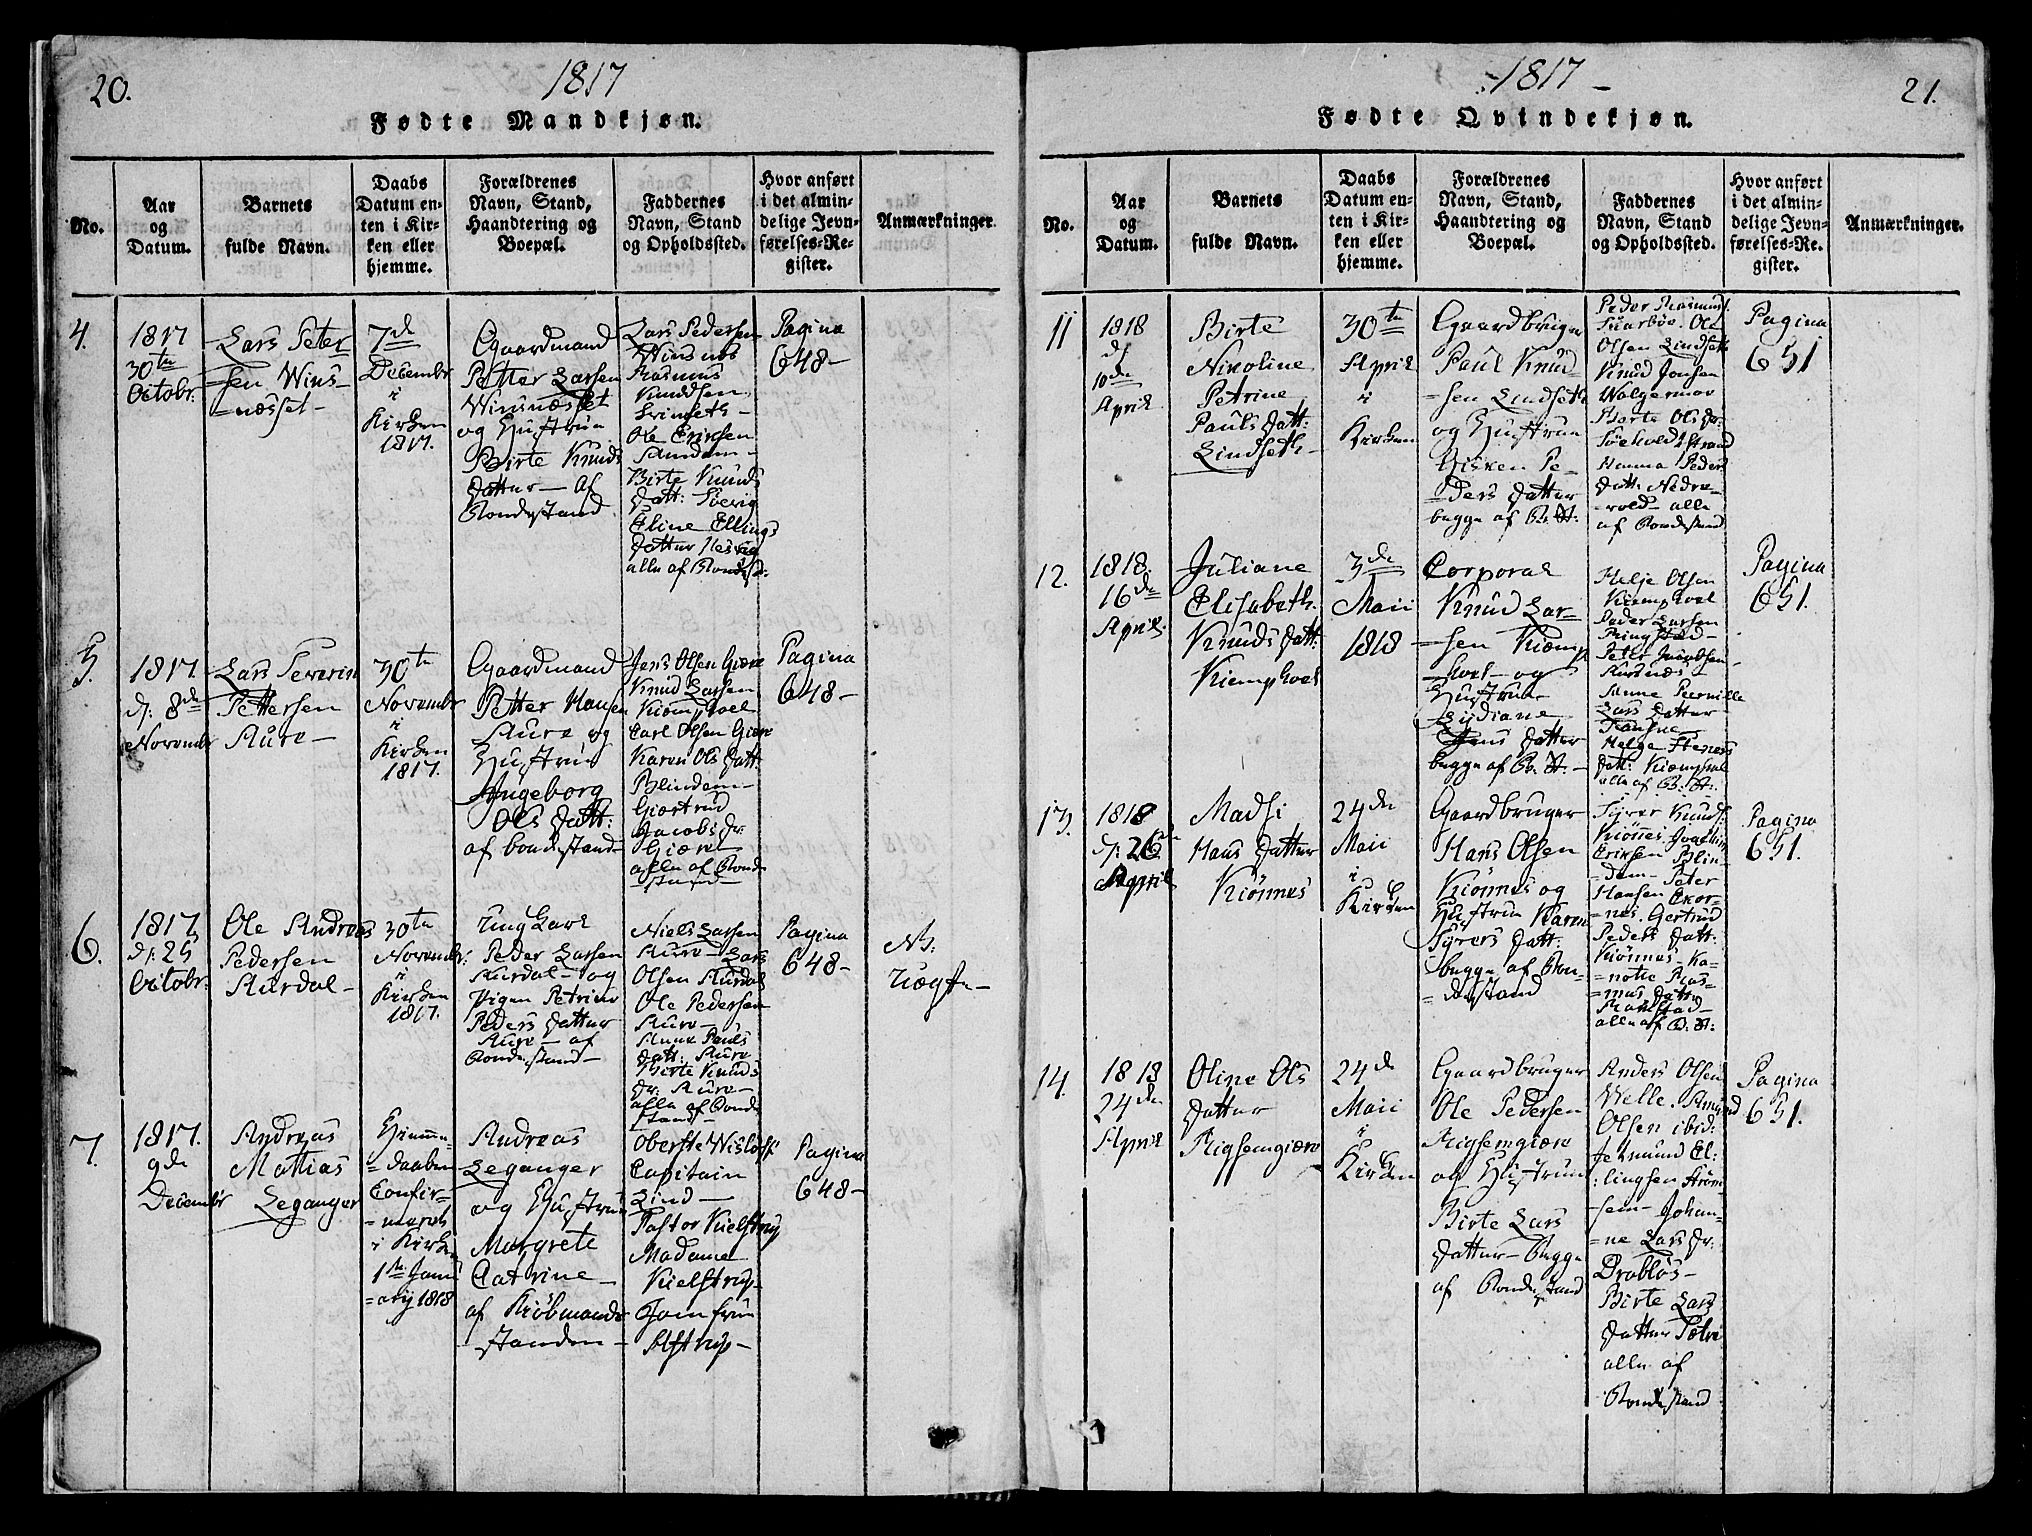 20.
1817
Fødte Mandkjøn.
No.
Aar
og
Datum.
Barnets
fulde Navn.
Daabs
Datum en-
ten i Kir-
ken eller
hjemme.
Forældrenes
Navn, Stand,
Haandtering og
Boepæl.
Faddernes
Navn, Stand
og Opholdssted.
Hvor anført
i det almin-
delige Jevn-
førelses-Re-
gister.
Anmærkninger.
4.
1817
30te
Octobr:
Lars Peter
sen Wins-
-næsset-
7de
Decembr
i
Kirken
1817.
Gaardmand
Petter Larsen
Winsnæsset
og Hustrue
Birte Knuds
datter- af
Bondestand
Lars Pedersen
Winsnæs
Rasmus
Knudsen
Ole Eriksen
Birte Knuds
datt:
Eline Ellings
datter
alle af Bondest:
Pagina
648-
5.
1817.
d: 8de
Novembr
Lars Severin
Pettersen
Aure-
30te
Novembr
i
Kirken
1817.
Gaardmand
Petter Hansen
Aure og
Hustrue
Ingeborg
Ols datt:
af bondestand-
Jens Olsen Giære
Knud Larsen
Kiemphoel
Carl Olsen Giære
Karen Ols datt:
Blindem-
Giertrud
Jacobs dr.
Giære
alle af Bonde
stand-
Pagina
648-
6.
1817
d: 25
Octobr:
Ole Andreas
Pedersen
Aurdal-
30te
Novembr:
i
Kirken
1817.
Ung Carl
Peder Larsen
Aurdal- og
Pigen Petrine
Peders datter
Aure- af
Bondestand-
Niels Larsen
Aure- Lars
Olsen Aurdal
Ole Pedersen
Aure-
Anne Pauls
datt: Aure
Birte Knuds
dr. Aure-
alle af Bonde
stand-
Pagina
648-
NB:
Uægte-
7.
1817.
9de
Decembr
Andreas
Mattias
Leganger
Hiemme-
=daaben
Confir-
=meret
i Kirken
1te Janu
=arij 1818
Andreas
Leganger
og Hustrue
Margrete
Catrine-
af Kiøbmands
standen-
Oberste Wisløff
Capitain
Lind-
Pastor Kielstrup
Madame
Kielstrup-
Jomfrue
Solstrup-
Pagina
648-
1817-
21.
Fødte Qvindekjøn.
No.
Aar
og
Datum.
Barnets
fulde Navn.
Daabs
Datum en-
ten i Kir-
ken eller
hjemme.
Forældrenes
Navn, Stand,
Haandtering og
Boepæl.
Faddernes
Navn, Stand
og Opholdssted.
Hvor anført
i det almin-
delige Jevn-
førelses-Re-
gister.
Anmærkninger.
11
1818
d:
10de
April
Birte
Nikoline
Petrine
Pauls datt:
Lindseth-
30te
April
i
Kirken
Gaardbruger
Paul Knud
=sen Lindseth
og Hustrue
Gisken Pe-
=ders datter
begge af B. St:
Peder Rasmus:
Olsen Lindseth
Knud Jonsen
Walgermoe
Berte Ols dr.
Hanna Peders
datt: Nedre-
-vold- alle
af Bondestand
Pagina
651
12.
1818.
16de
April
Juliane
Elisabeth.
Knuds datt:
Kiemphoel
3de
Maii
1818
Corporal
Knud Lar-
=sen Kiemp
hoel- og
Hustrue
Lydiane
Jens datter
begge af B. St:-
Helje Olsen
Kiemphoel
Peder Larsen
Ringstad-
Peter Jacobsen
Aursnæs-
Anne Pernille
Lars datter
Helge Steners
datt: Kiemphoel
alle af B. St:
Pagina
651.
13.
1818
d: 26de
April
Madsi
Hans datter
Kiønnes
24de
Maii
i
Kirken
Gaardbruger
Hans Olsen
Kiønnes og
Hustrue Karen
Syvers datt:
begge af Bon-
=destand
Syver Knuds:
Kiønnes. Joachim
Eriksen Blin-
=dem- Peter
Hansen Ekor-
=nes. Gertrud
Peders datt:
Kiønnes- Ka-
=notie Ras-
=mus datter
alle af B. St:
Pagina
651.
14.
1818
24de
April
Oline Ols
datter
Rigsemgiære
24de
Maii
i
Kirken
Gaardbruger
Ole Pedersen
Rigsemgiære
og Hustrue
Birte Lars
datter- Begge
af Bondestand
Anders Olsen
Welle. Amund
Olsen ibid:
Jetmund El-
:lingsen Strøm
=sem- Johan-
=ne Lars dr:
Drabløs-
Birte Lars
datter Sætre
alle af
Bondestand
Pagina
651.